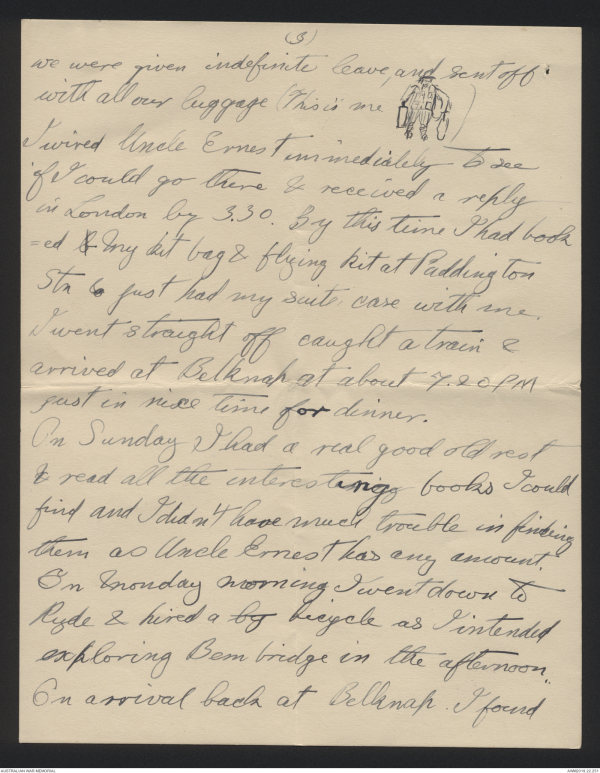 (3)
we were given indefinite leave, and sent off
with all our luggage (This is me )
I wired Uncle Ernest immediately to see
if I could go there & received a reply
in London by 3.30. By this time I had book
=ed & my kit bag & flying kit at Paddington
Stn & just had my suit case with me.
I went straight off caught a train &
arrived at Belknap at about 7.20 PM
just in nice time for dinner.
On Sunday I had a real good old rest
& read all the interesting books I could
find and I didn't have much trouble in finding
them as Uncle Ernest has any amount.
On Monday morning I went down to
Ryde & hired a by bicycle as I intended
exploring Bembridge in the afternoon.
On arrival back at Belknap I found
AUSTRALIAN WAR MEMORIAL